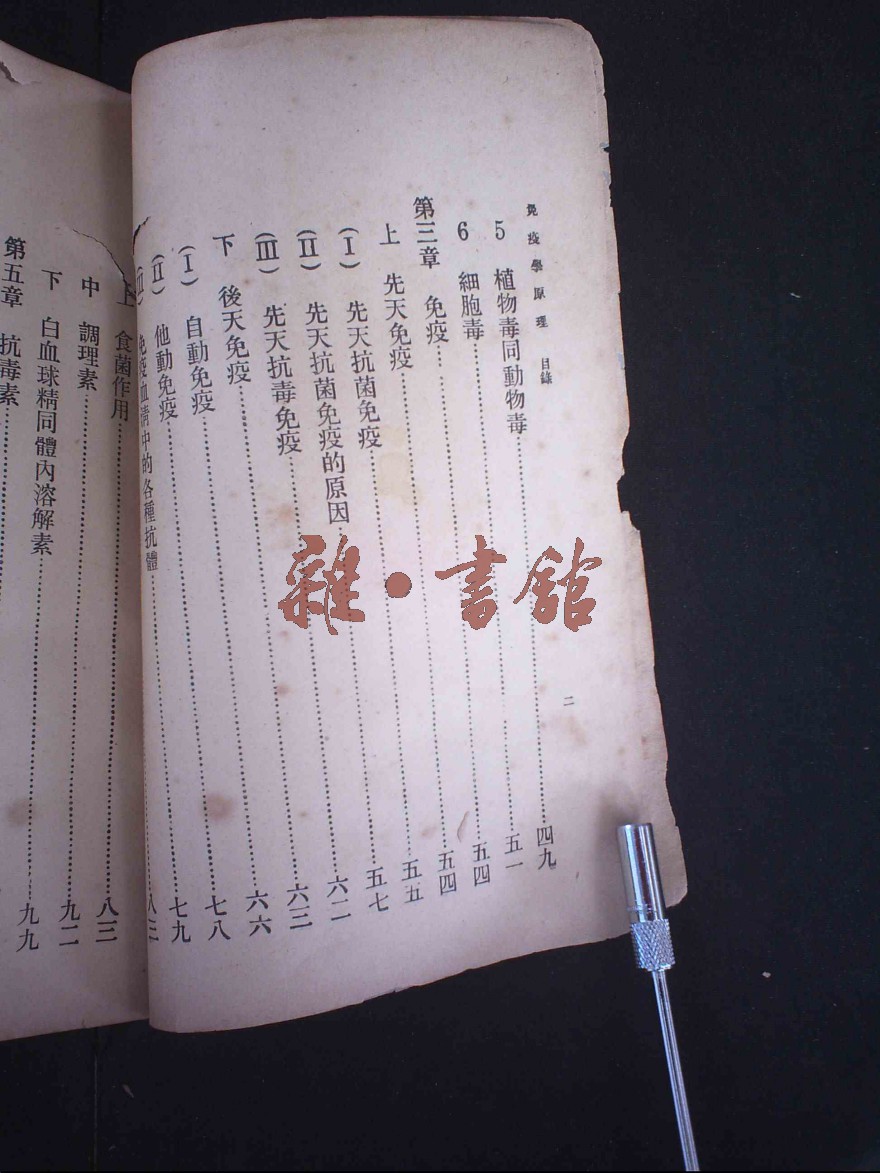 免疫學原理 目錄 二
5 植物毒同動物毒……四九
6 細胞毒……五一
第三章 免疫……五四
上 先天免疫……五四
(I) 先天抗菌免疫……五五
(II) 先天抗菌免疫的原因……五七
(III) 先天抗毒免疫……六二
下 後天免疫……六三
(I) 自動免疫……六六
(II) 他動免疫……七八
(III) 免疫血清中的各種抗體……七九
八三
上 食菌作用……八三
中 調理素……九二
下 白血球精同體內溶解素……九九
第五章 抗毒素……
雜·書館